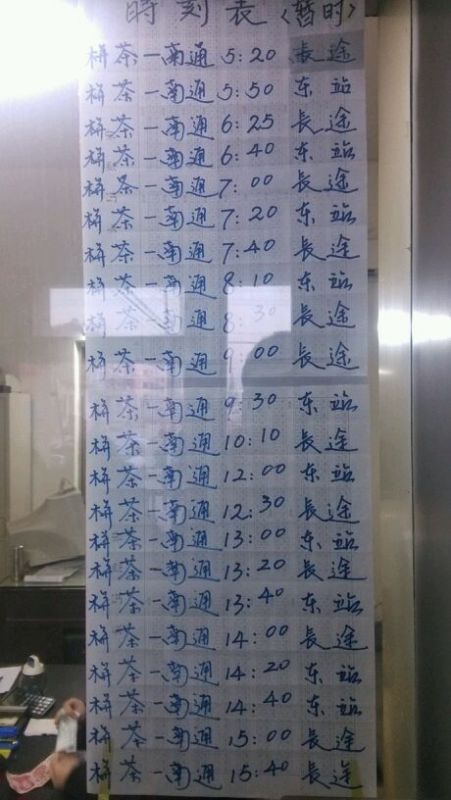 時刻表〈暂时〉
栟茶一南通 5:20 長途
栟茶一南通 5:50 东站
栟茶一南通 6:25 長途
栟茶一南通 6:40 东站
栟茶一南通 7:00 長途
栟茶一南通 7:20 东站
栟茶一南通 7:40 長途
栟茶一南通 8:10 东站
栟茶一南通 8:30 長途
栟茶一南通 9:00 長途
栟茶一南通 9:30 东站
栟茶一南通 10:10 長途
栟茶一南通 12:00 东站
栟茶一南通 12:30 長途
栟茶一南通 13:00 东站
栟茶一南通 13:20 長途
栟茶一南通 13:40 东站
栟茶一南通 14:00 長途
栟茶一南通 14:20 东站
栟茶一南通 14:40 东站
栟茶一南通 15:00 長途
栟茶一南通 15:40 長途